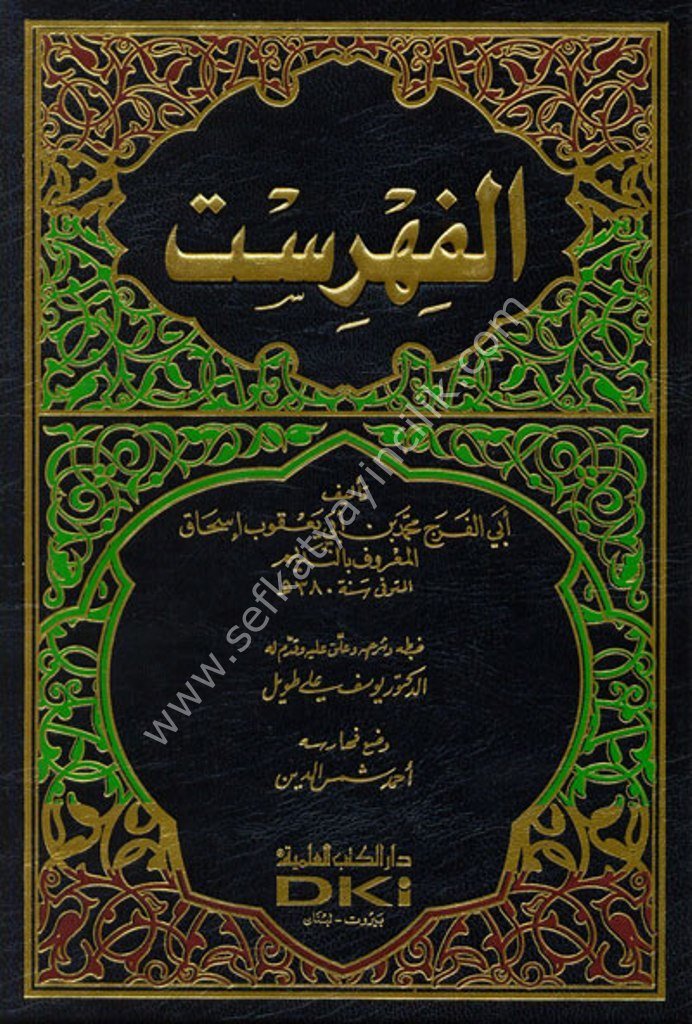 الفِهْرِسْت
تأليف
أبي الفرج محمّد بن أبي يعقوب إسحاق
المعروف بالنّديم
المتوفى سنة ٣٨٠هـ
ضبطه وشرحه وعلّق عليه وقدّم له
الدكتور يوسف علي طويل
وضع فهارسه
أحمد شمس الدين
دار الكتب العلمية
DKi
بيروت - لبنان
www.sefkatyayincilik.com